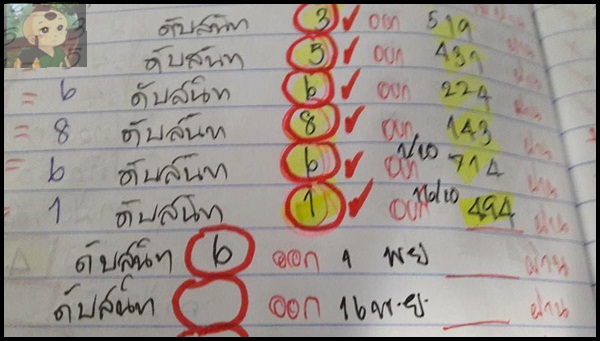 ดับสนิท 3 ✓ ออก 519
ดับสนิท 5 ✓ ออก 431 ผ่าน
= 6 ดับสนิท 6 ✓ ออก 224 ผ่าน
= 8 ดับสนิท 8 ✓ ออก 143 ผ่าน
= 6 ดับสนิท 6 ✓ ออก 714 ผ่าน
= 1 ดับสนิท 1 ✓ ออก 494 ผ่าน
ดับสนิท 6 ออก 1 พย ผ่าน
ดับสนิท ออก 16 พ.ย. ผ่าน